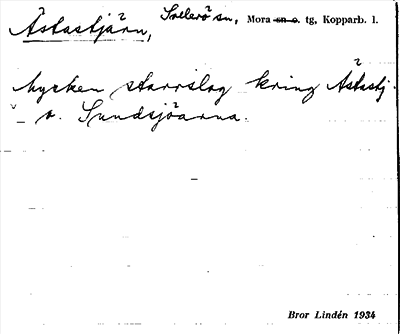 Åstastjärn, Sollerö sn, Mora sn o. tg, Kopparb. l.
Mycken starrslog kring Åstastj.
o. Sundsjöarna.
Bror Lindén 1934